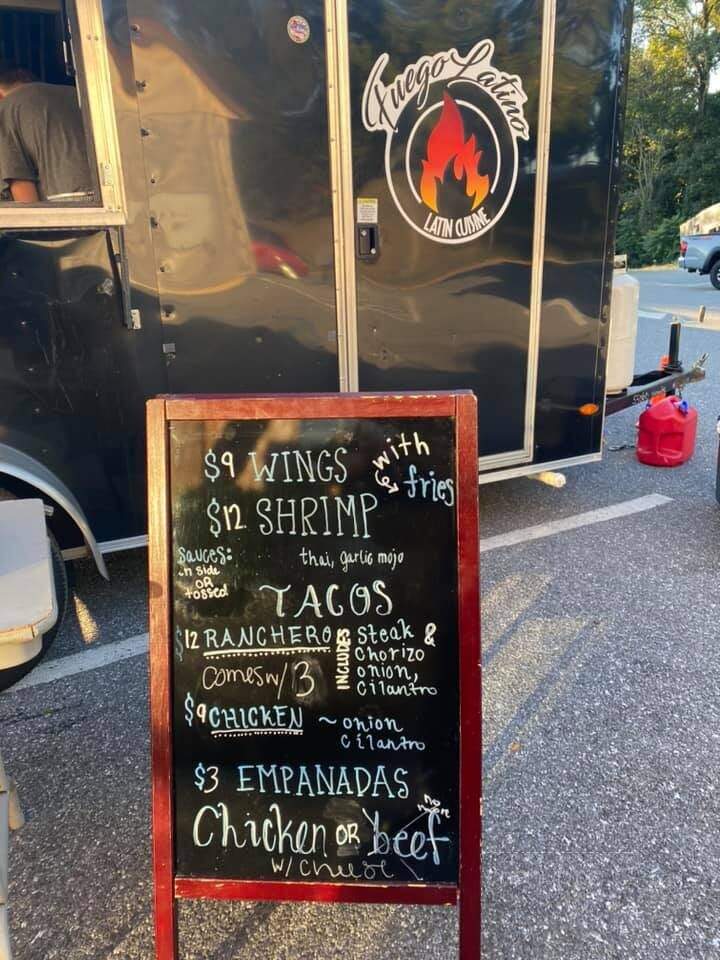 Fuego Latino
LATIN CUISINE
$9 WINGS with fries
$12 SHRIMP
sauces: thai, garlic mojo
on side
OR
tossed
TACOS
$12 RANCHERO INCLUDES steak &
chorizo
comes w/ 3 onion,
cilantro
$9 CHICKEN ~ onion
cilantro
$3 EMPANADAS
Chicken OR beef no more
w/ cheese